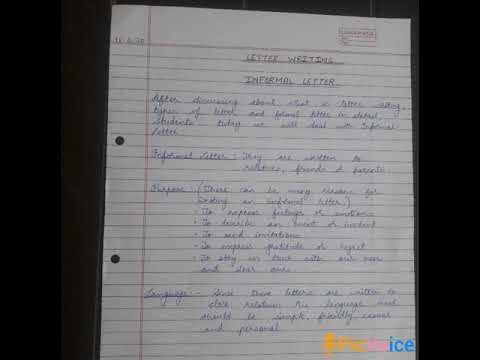 LETTER WRITING
INFORMAL LETTER
After discussing about what is letter writing,
types of letter and formal letter in detail,
students today we will deal with Informal
letter
Informal Letter :- They are written to
relatives, friends & parents
Purpose :- (There can be many reasons for
writing an informal letter.)
· To express feelings or emotions
· To describe an event or incident
· To send invitations
· To express gratitude or regret
· To stay in touch with our near
and dear ones
Language :- Since these letters are written to
close relatives the language used
should be simple, friendly casual
and personal
PicVoice